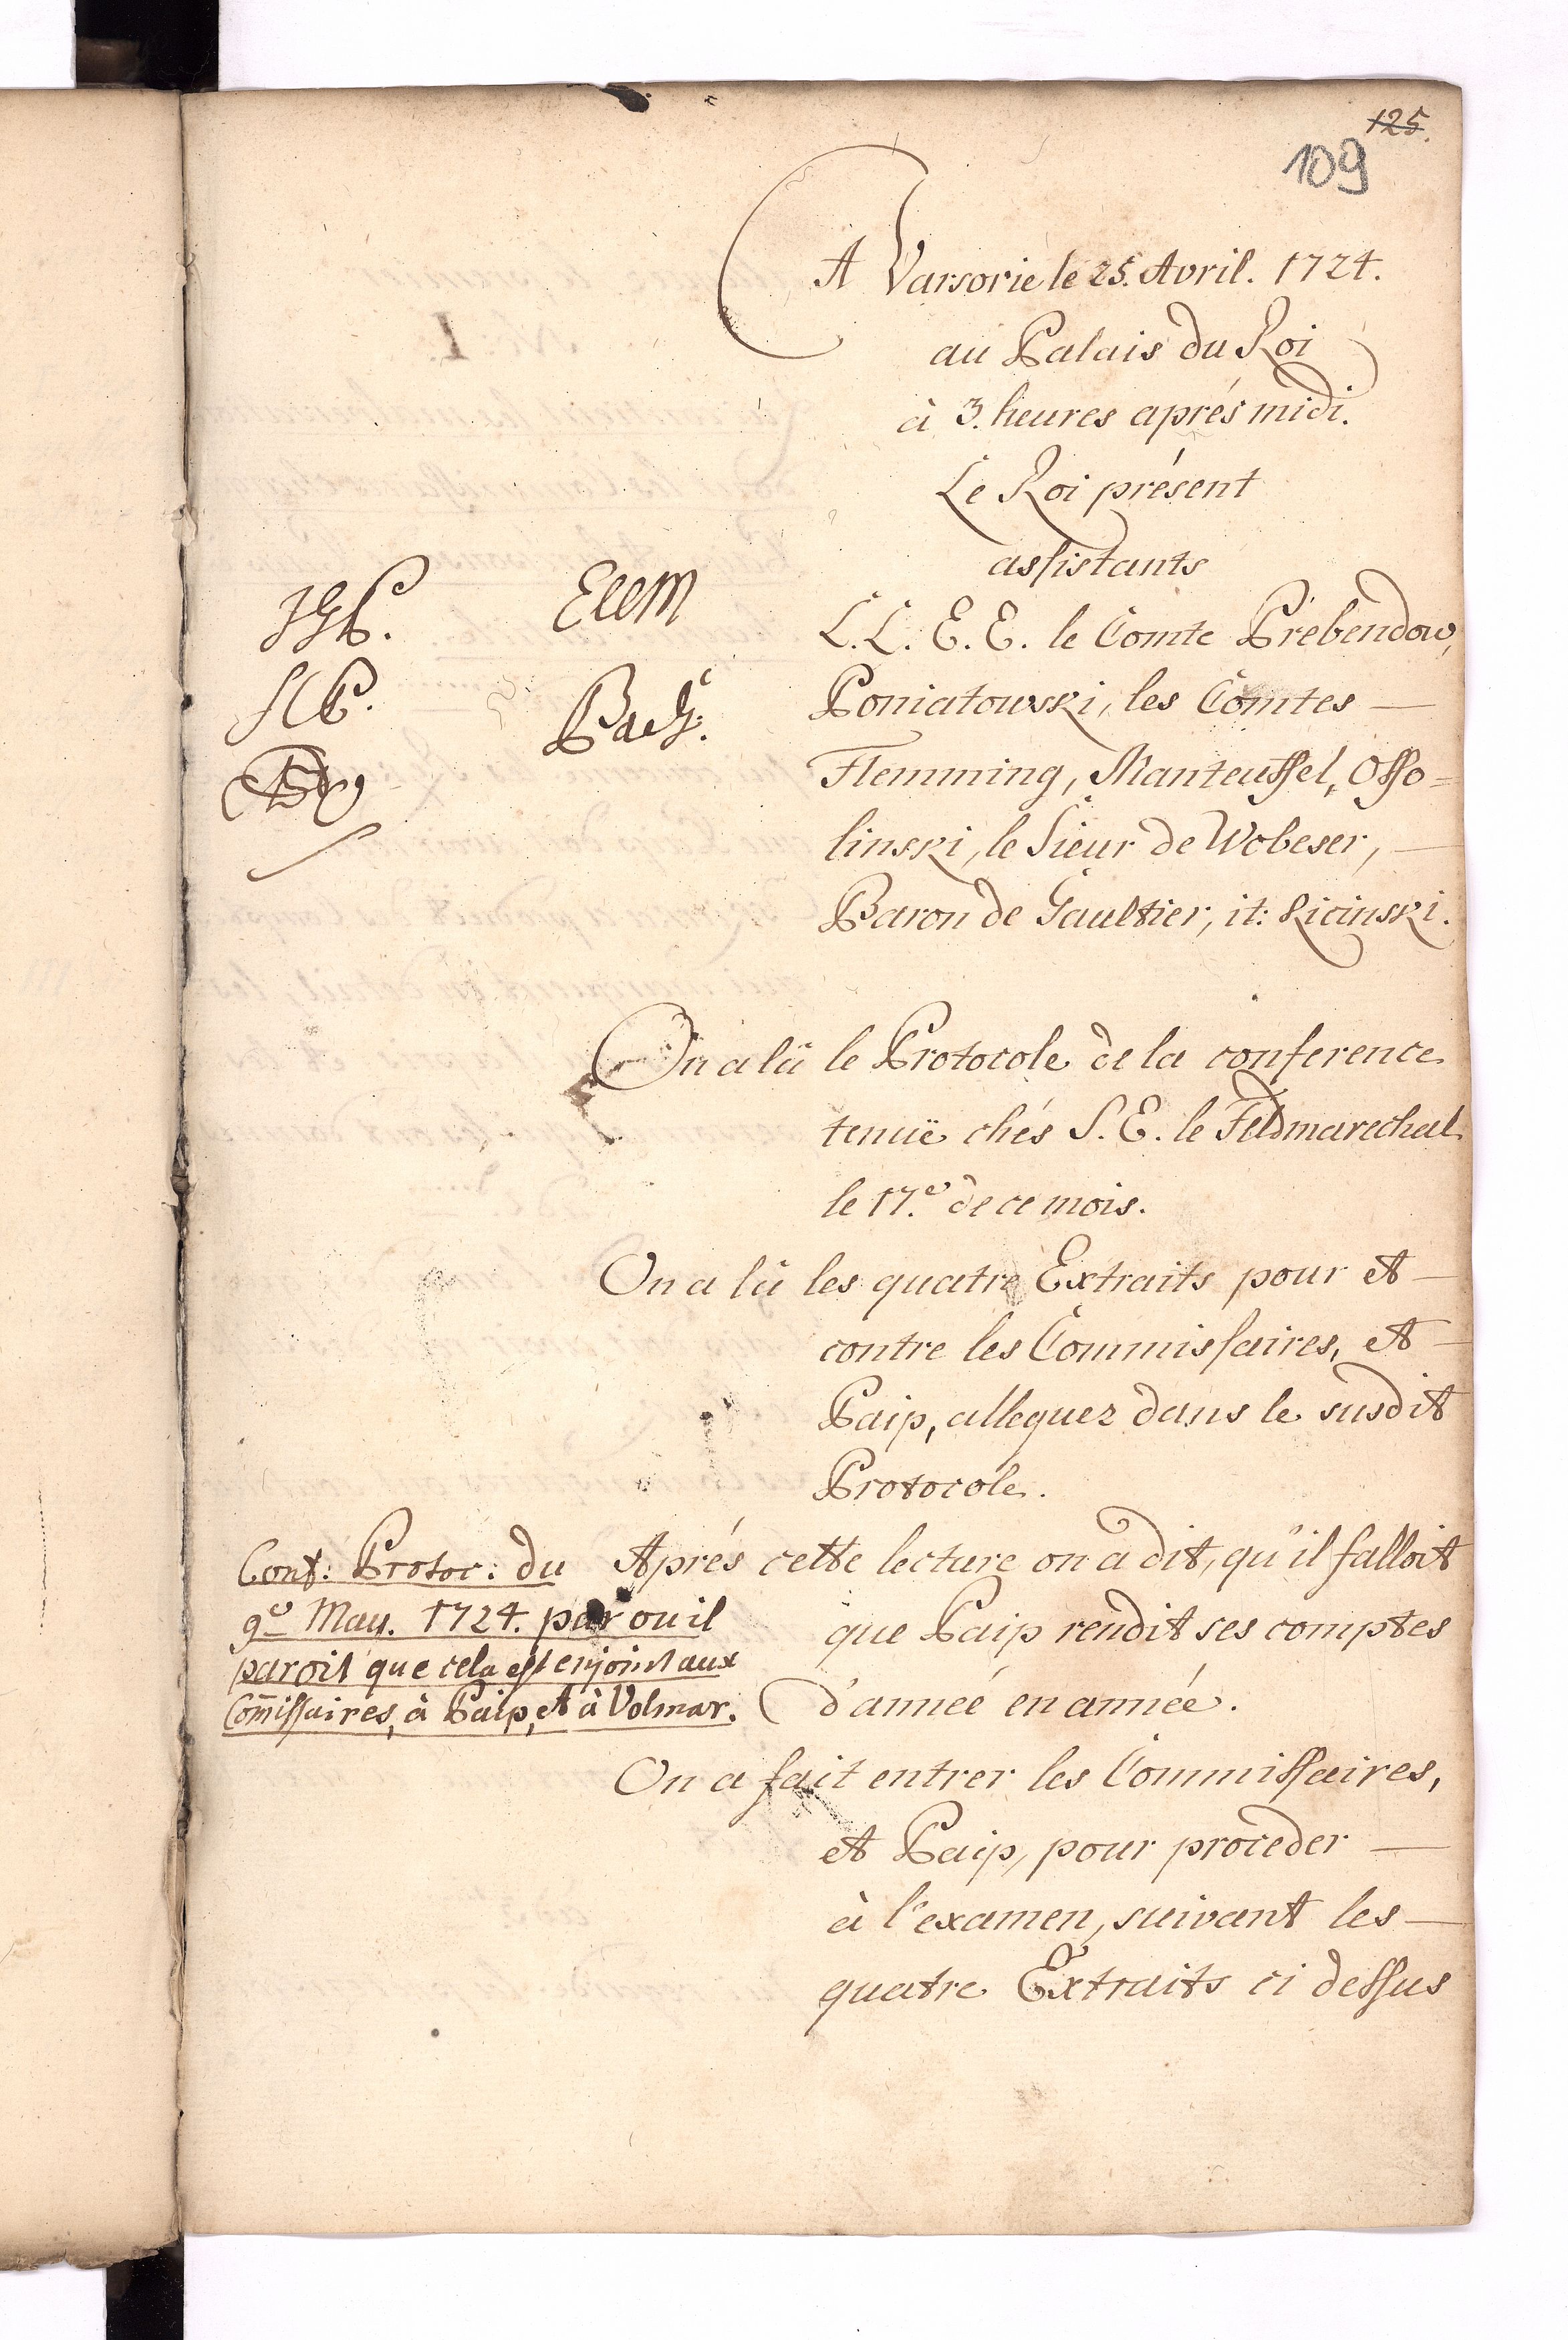 125.
109
A Varsovie le 25. Avril. 1724.
au Palais du Roi
à 3. heures aprés midi.
Le Roi présent
assistants
L.L. E.E. le Comte Prebendow,
Poniatowski, les Comtes —
Flemming, Manteuffel, Osso=
linski, le Sieur de Wobeser, —
Baron de Gaultier, it: Licinski.
On a lü le Protocole de la conference
tenuë chés S.E. le Feldmarechal
le 17.e de ce mois.
On a lü les quatre Extraits pour et —
contre les Commissaires, et —
Paip, alleguez dans le susdit
Protocole.
Conf: Protoc: du
9.e May. 1724. par ou il
paroit que cela est enjoint aux
Com̄issaires, à Paip, et à Volmar.
Aprés cette lecture on a dit, qu'il falloit
que Paip rendit ses comptes
d'année en année.
On a fait entrer les Commissaires,
et Paip, pour proceder —
à l'examen, suivant les —
quatre Extraits ci dessus